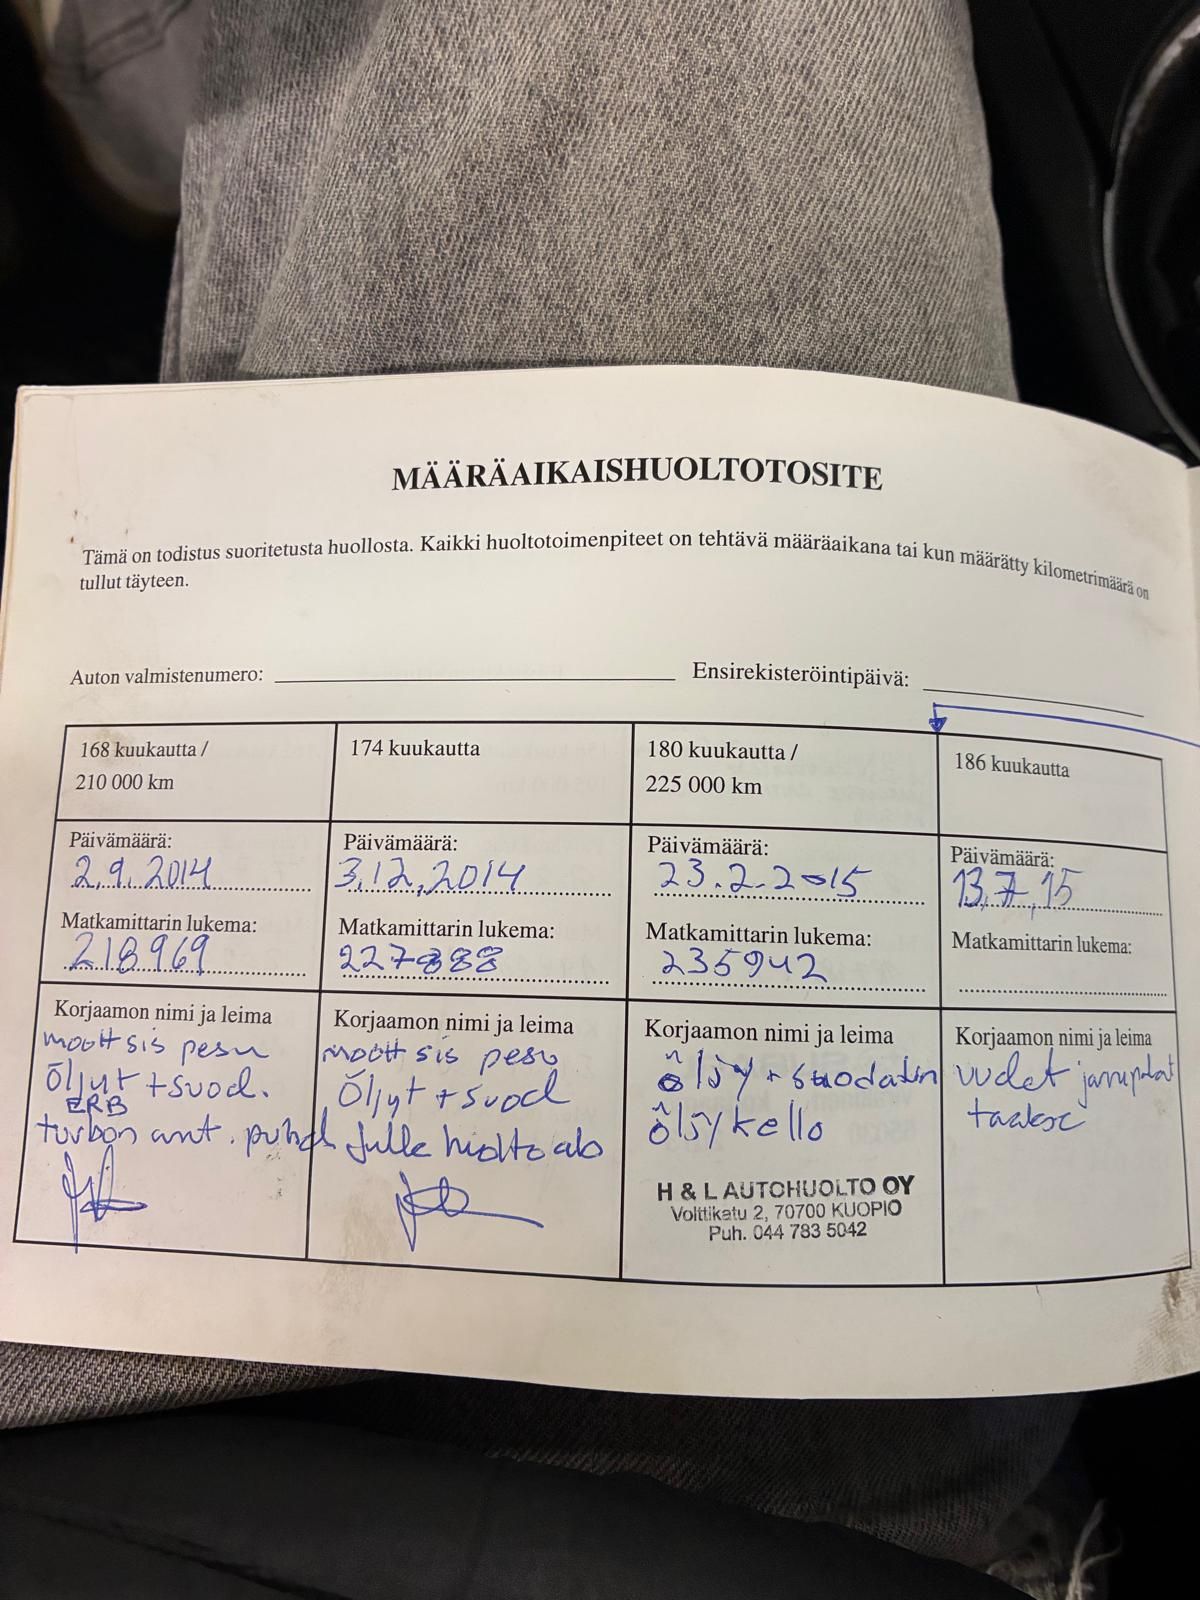 MÄÄRÄAIKAISHUOLTOTOSITE
Tämä on todistus suoritetusta huollosta. Kaikki huoltotoimenpiteet on tehtävä määräaikana tai kun määrätty kilometrimäärä on
tullut täyteen.
Auton valmistenumero:
Ensirekisteröintipäivä:
168 kuukautta /
210 000 km
Päivämäärä:
2.9.2014
Matkamittarin lukema:
218969
Korjaamon nimi ja leima
moott sis pesu
Öljyt + suod.
turbon ant. puhd
174 kuukautta
Päivämäärä:
3.12.2014
Matkamittarin lukema:
227888
Korjaamon nimi ja leima
moott sis pesu
Öljyt + suod
180 kuukautta /
225 000 km
Päivämäärä:
23.2.2015
Matkamittarin lukema:
235942
Korjaamon nimi ja leima
öljy + suodatin
öljykello
H & L AUTOHUOLTO OY
Volttikatu 2, 70700 KUOPIO
Puh. 044 783 5042
186 kuukautta
Päivämäärä:
13.7.15
Matkamittarin lukema:
Korjaamon nimi ja leima
uudet jarrupalat
taakse